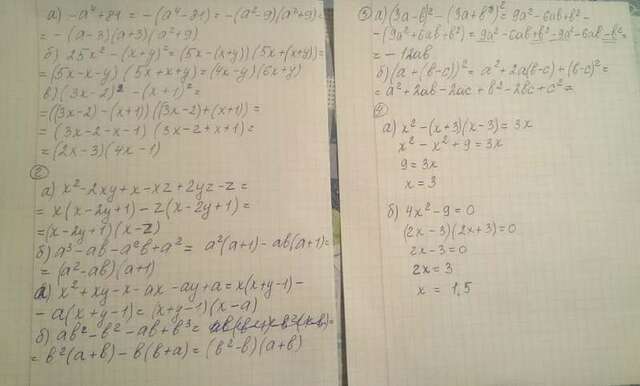 а) -a⁴+81 = -(a⁴-81) = -(a²-9)(a²+9) =
= -(a-3)(a+3)(a²+9)
б) 25x² - (x+y)² = (5x-(x+y))(5x+(x+y)) =
= (5x-x-y)(5x+x+y) = (4x-y)(6x+y)
в) (3x-2)² - (x+1)² =
= ((3x-2)-(x+1))((3x-2)+(x+1)) =
= (3x-2-x-1)(3x-2+x+1) =
= (2x-3)(4x-1)
②
а) x²-2xy+x-xz+2yz-z =
= x(x-2y+1)-z(x-2y+1) =
= (x-2y+1)(x-z)
б) a³-ab-a²b+a² = a²(a+1)-ab(a+1) =
= (a²-ab)(a+1)
а) x²+xy-x-ax-ay+a = x(x+y-1)-
-a(x+y-1) = (x+y-1)(x-a)
б) ab²-b²-ab+b³ =
= b²(a+b)-b(b+a) = (b²-b)(a+b)
③ а) (3a-b)²-(3a+b)² = 9a²-6ab+b²-
-(9a²+6ab+b²) = 9a²-6ab+b²-9a²-6ab-b² =
= -12ab
б) (a+(b-c))² = a²+2a(b-c)+(b-c)² =
= a²+2ab-2ac+b²-2bc+c² =
④
а) x²-(x+3)(x-3) = 3x
x²-x²+9 = 3x
9 = 3x
x = 3
б) 4x²-9 = 0
(2x-3)(2x+3) = 0
2x-3 = 0
2x = 3
x = 1,5